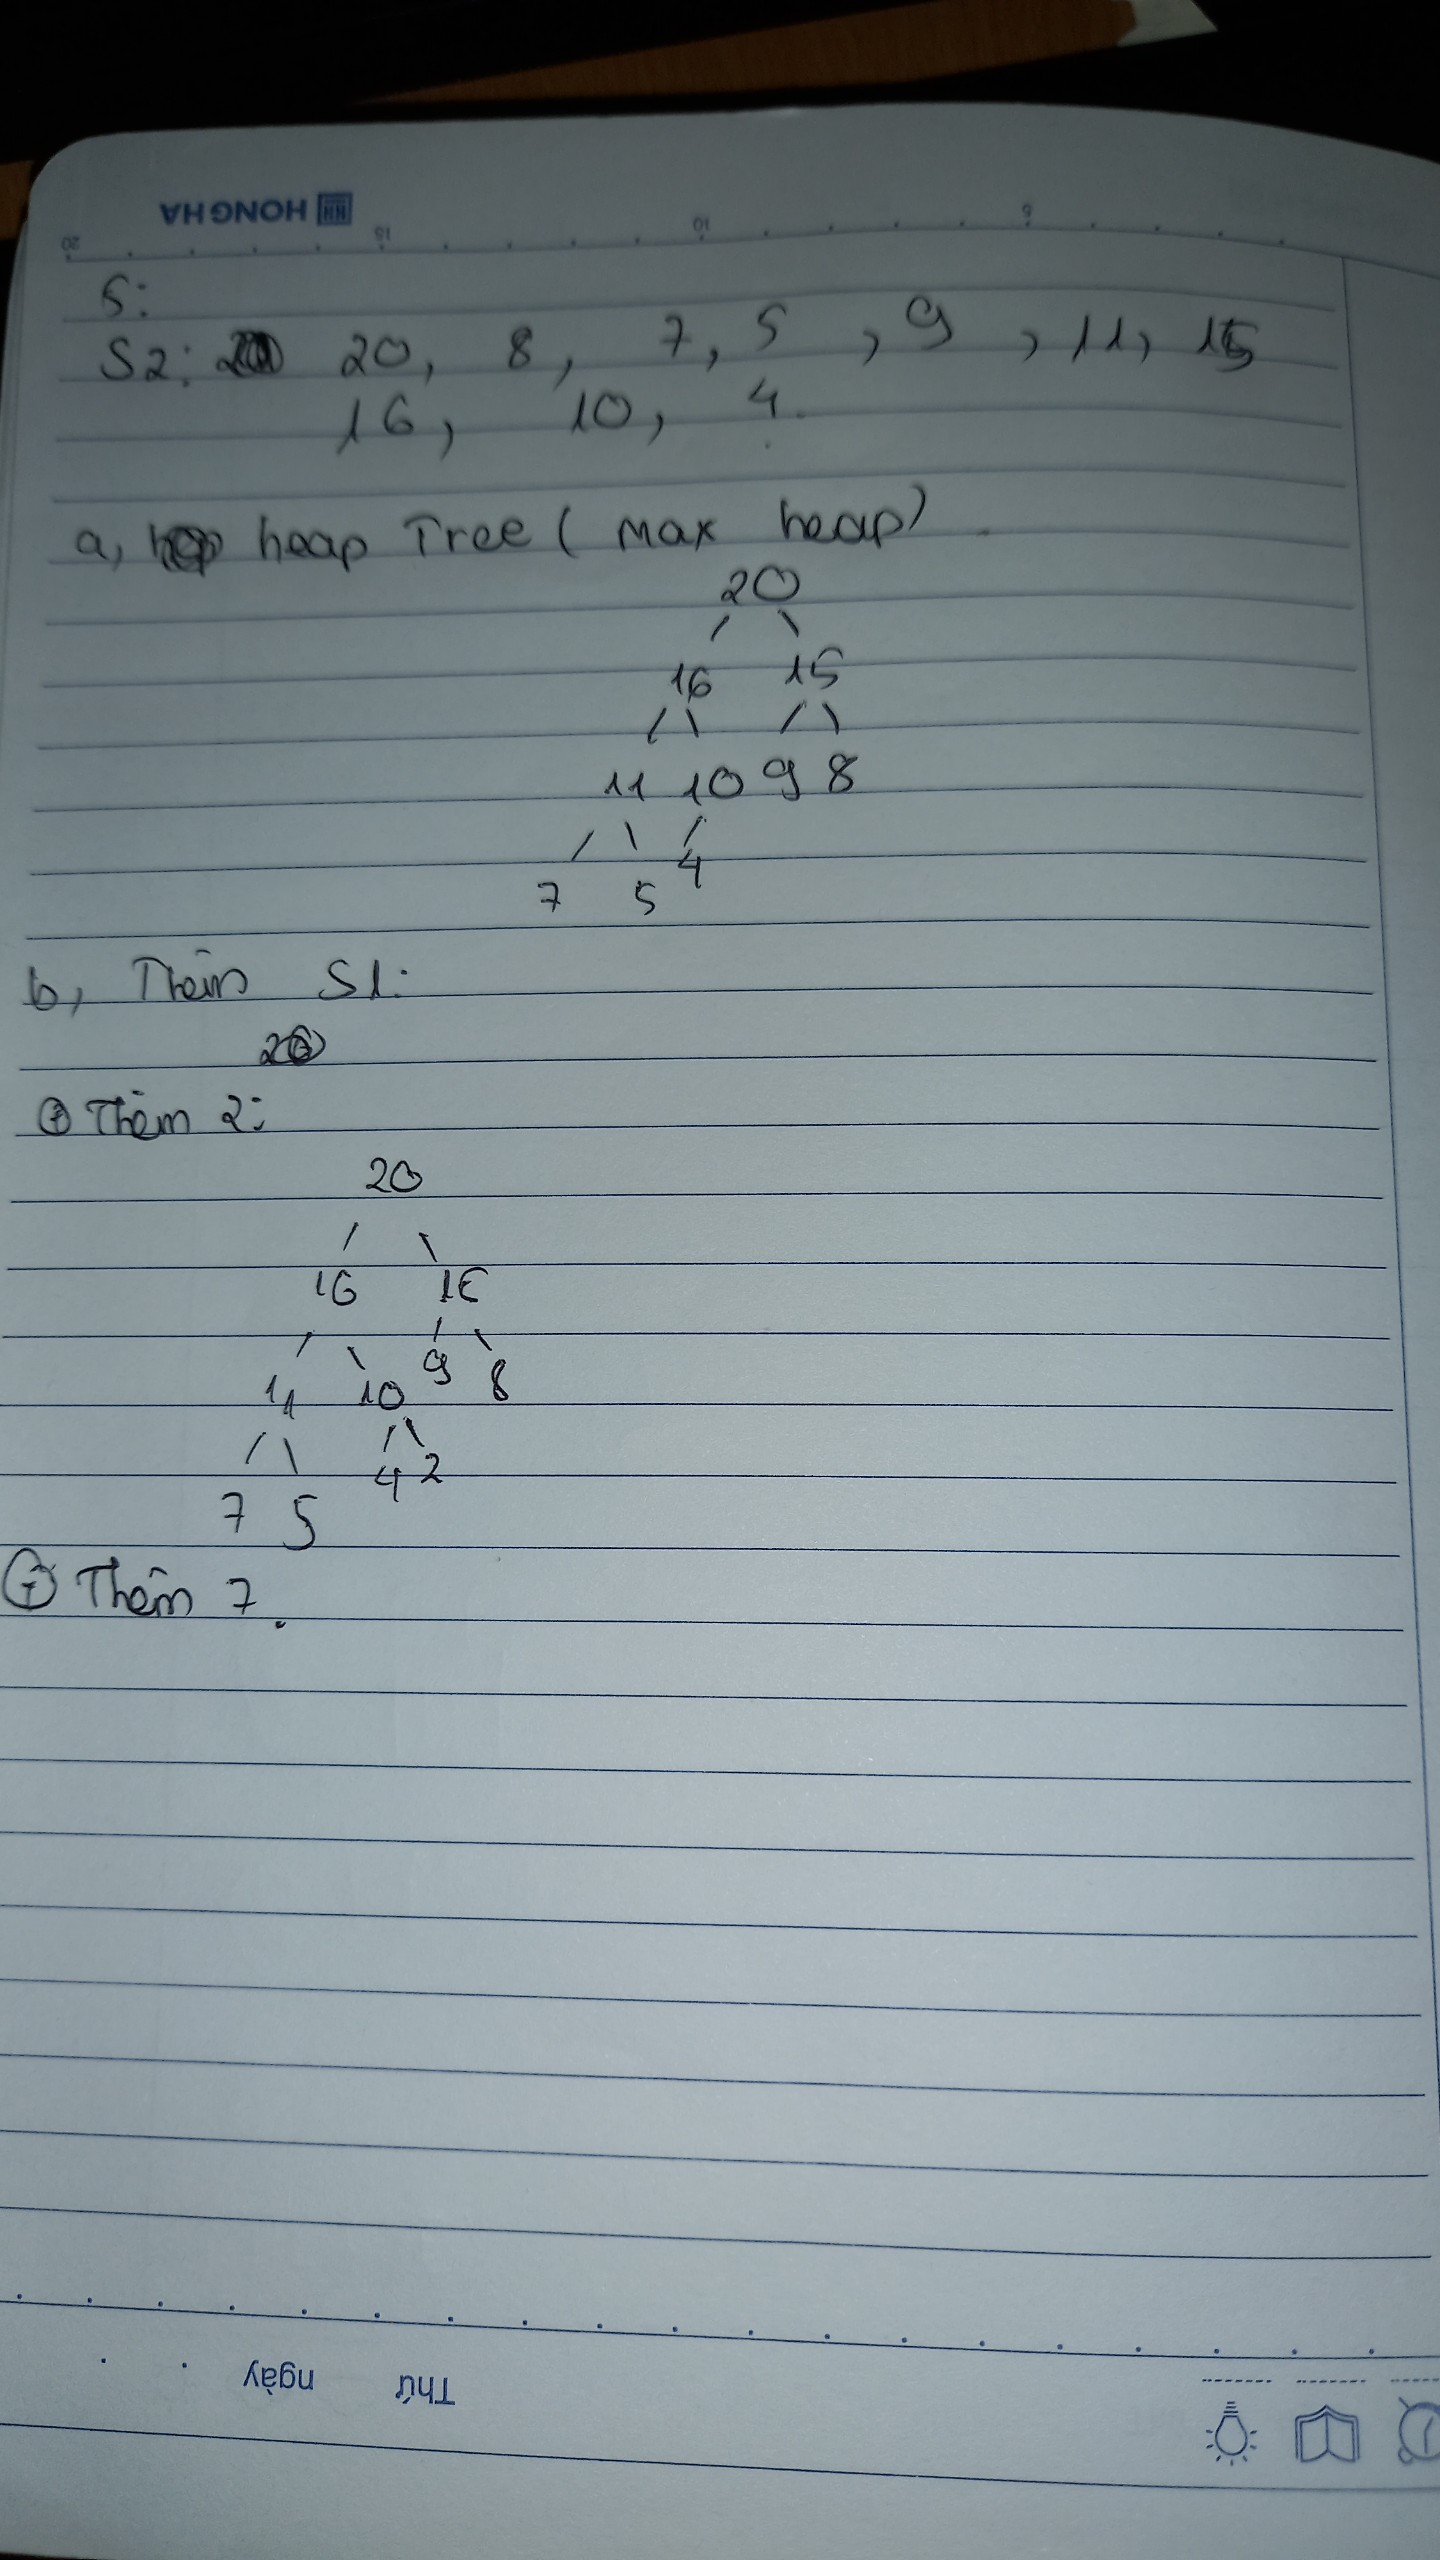 HONG HA
20 15 10 5
S:
S2: 20, 8, 7, 5, 9, 11, 15
16, 10, 4.
a, heap Tree ( Max heap)
20
16 15
11 10 9 8
7 5 4
b, Thêm S1:
⊕ Thêm 2:
20
16 15
11 10 9 8
7 5 4 2
⊕ Thêm 7.
Thứ ngày